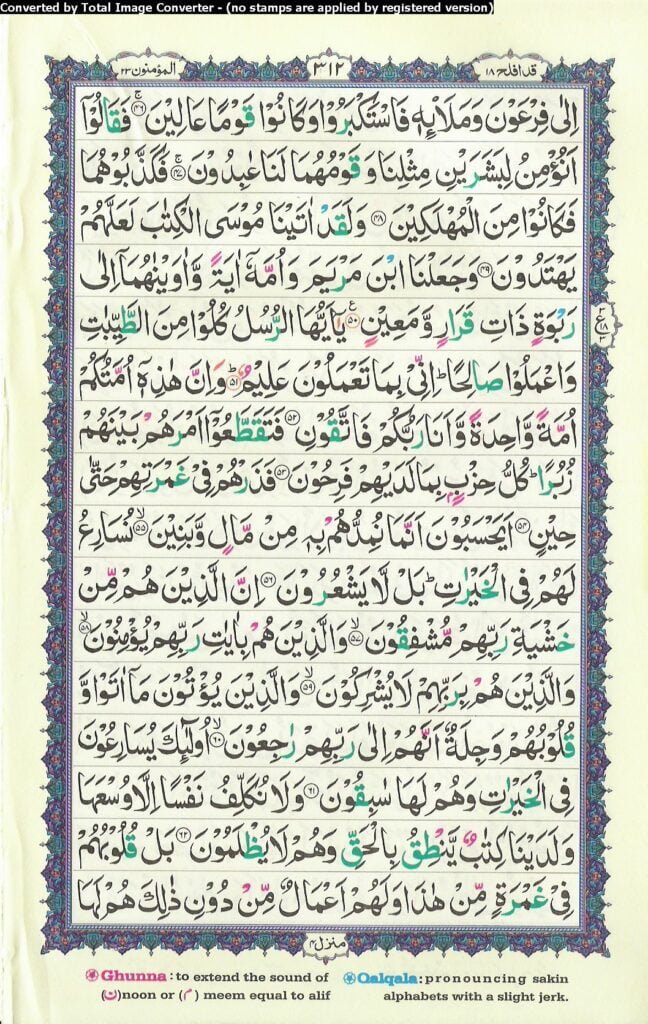 Converted by Total Image Converter - (no stamps are applied by registered version)
قد افلح ١٨ ٣١٢ المؤمنون ٢٣
اِلٰى فِرْعَوْنَ وَمَلَا۟ئِهٖ فَاسْتَكْبَرُوْا وَكَانُوْا قَوْمًا عَالِيْنَ ۚ‏﴿۴۶﴾ فَقَالُوْۤا
اَنُؤْمِنُ لِبَشَرَيْنِ مِثْلِنَا وَقَوْمُهُمَا لَنَا عٰبِدُوْنَ ۚ‏﴿۴۷﴾ فَكَذَّبُوْهُمَا
فَكَانُوْا مِنَ الْمُهْلَكِيْنَ ﴿۴۸﴾ وَلَقَدْ اٰتَيْنَا مُوْسَى الْكِتٰبَ لَعَلَّهُمْ
يَهْتَدُوْنَ ﴿۴۹﴾ وَجَعَلْنَا ابْنَ مَرْيَمَ وَاُمَّهٗۤ اٰيَةً وَّاٰوَيْنٰهُمَاۤ اِلٰى
رَبْوَةٍ ذَاتِ قَرَارٍ وَّمَعِيْنٍ ﴿۵۰﴾ يٰۤاَيُّهَا الرُّسُلُ كُلُوْا مِنَ الطَّيِّبٰتِ
وَاعْمَلُوْا صَالِحًا ؕ اِنِّىْ بِمَا تَعْمَلُوْنَ عَلِيْمٌ ؕ‏﴿۵۱﴾ وَاِنَّ هٰذِهٖۤ اُمَّتُكُمْ
اُمَّةً وَّاحِدَةً وَّاَنَا رَبُّكُمْ فَاتَّقُوْنِ ﴿۵۲﴾ فَتَقَطَّعُوْۤا اَمْرَهُمْ بَيْنَهُمْ
زُبُرًا ؕ كُلُّ حِزْبٍۢ بِمَا لَدَيْهِمْ فَرِحُوْنَ ﴿۵۳﴾ فَذَرْهُمْ فِىْ غَمْرَتِهِمْ حَتّٰى
حِيْنٍ ﴿۵۴﴾ اَيَحْسَبُوْنَ اَنَّمَا نُمِدُّهُمْ بِهٖ مِنْ مَّالٍ وَّبَنِيْنَ ۙ‏﴿۵۵﴾ نُسَارِعُ
لَهُمْ فِى الْخَيْرٰتِ ؕ بَلْ لَّا يَشْعُرُوْنَ ﴿۵۶﴾ اِنَّ الَّذِيْنَ هُمْ مِّنْ
خَشْيَةِ رَبِّهِمْ مُّشْفِقُوْنَ ۙ‏﴿۵۷﴾ وَالَّذِيْنَ هُمْ بِاٰيٰتِ رَبِّهِمْ يُؤْمِنُوْنَ ۙ‏﴿۵۸﴾
وَالَّذِيْنَ هُمْ بِرَبِّهِمْ لَا يُشْرِكُوْنَ ۙ‏﴿۵۹﴾ وَالَّذِيْنَ يُؤْتُوْنَ مَاۤ اٰتَوْا وَّ
قُلُوْبُهُمْ وَجِلَةٌ اَنَّهُمْ اِلٰى رَبِّهِمْ رٰجِعُوْنَ ۙ‏﴿۶۰﴾ اُولٰٓئِكَ يُسَارِعُوْنَ
فِى الْخَيْرٰتِ وَهُمْ لَهَا سٰبِقُوْنَ ﴿۶۱﴾ وَلَا نُكَلِّفُ نَفْسًا اِلَّا وُسْعَهَا
وَلَدَيْنَا كِتٰبٌ يَّنْطِقُ بِالْحَقِّ وَهُمْ لَا يُظْلَمُوْنَ ﴿۶۲﴾ بَلْ قُلُوْبُهُمْ
فِىْ غَمْرَةٍ مِّنْ هٰذَا وَلَهُمْ اَعْمَالٌ مِّنْ دُوْنِ ذٰلِكَ هُمْ لَهَا
منزل ٤
Ghunna : to extend the sound of Qalqala : pronouncing sakin
(ن) noon or (م) meem equal to alif alphabets with a slight jerk.